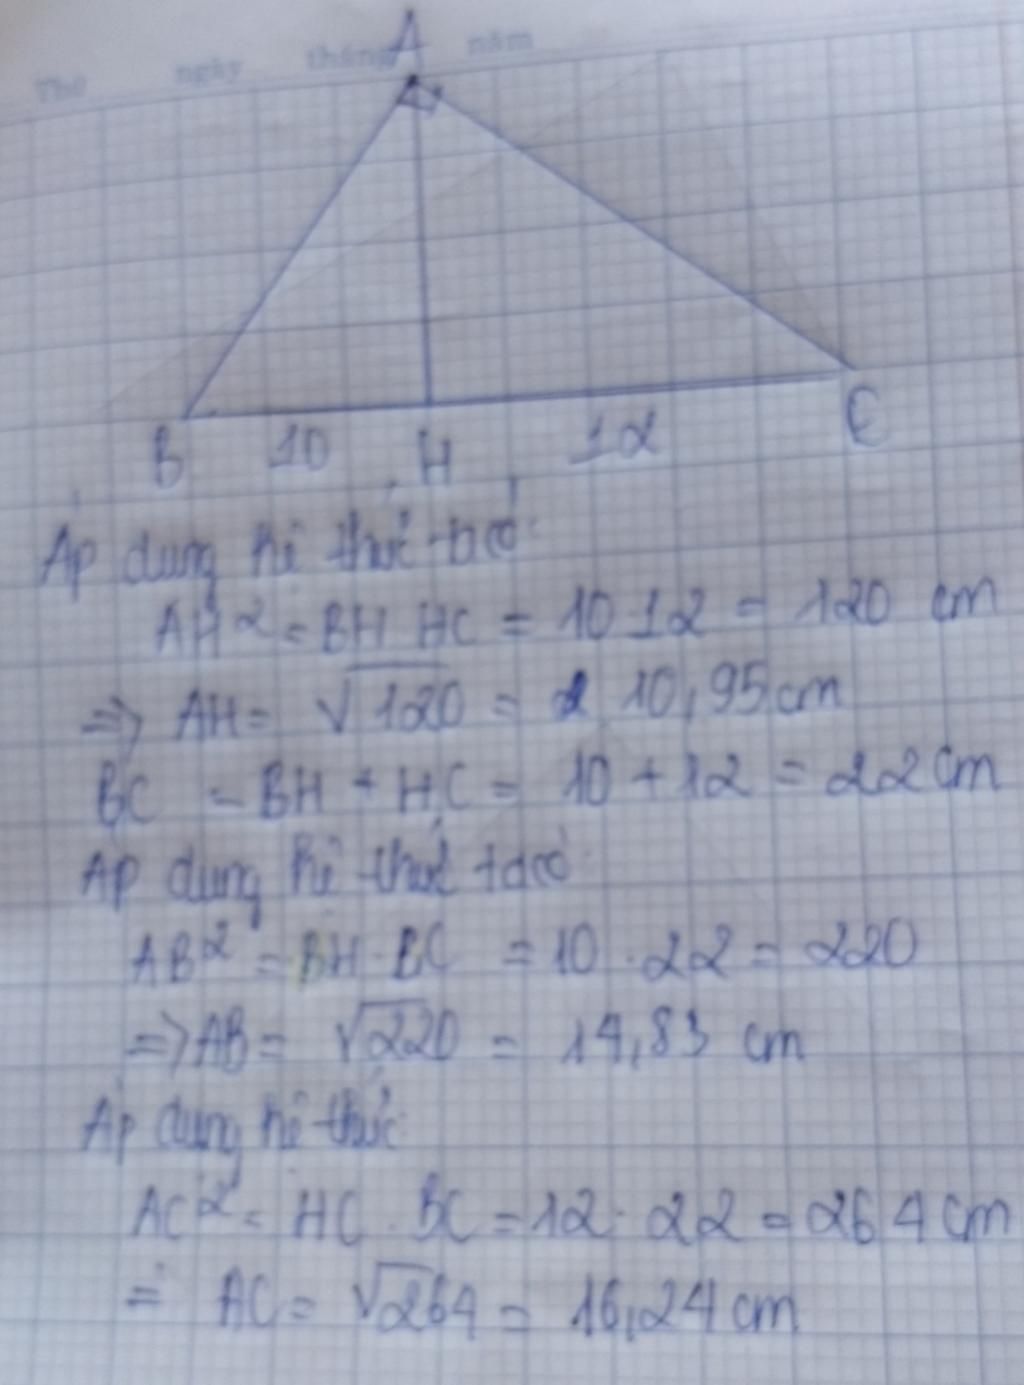 Thứ ngày tháng năm
A
B 10 H 12 C
Áp dụng hệ thức ta có:
AH² = BH HC = 10 12 = 120 cm
=> AH = √120 = 10,95 cm
BC = BH + HC = 10 + 12 = 22 cm
Áp dụng hệ thức ta có
AB² = BH . BC = 10 . 22 = 220
=> AB = √220 = 14,83 cm
Áp dụng hệ thức
AC² = HC . BC = 12 . 22 = 264 cm
= AC = √264 = 16,24 cm